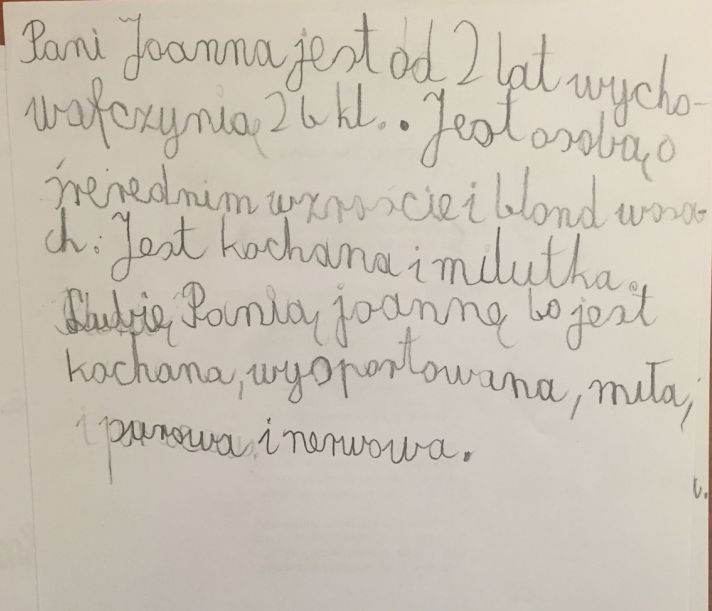 Pani Joanna jest od 2 lat wycho-
wafczynią 2 b kl.. Jest osobą o
śrerednim wzroście i blond wosa-
ch. Jest kochana i milutka.
Lubię Panią joannę bo jest
kochana, wysportowana, miła,
i purowa i nerwowa.